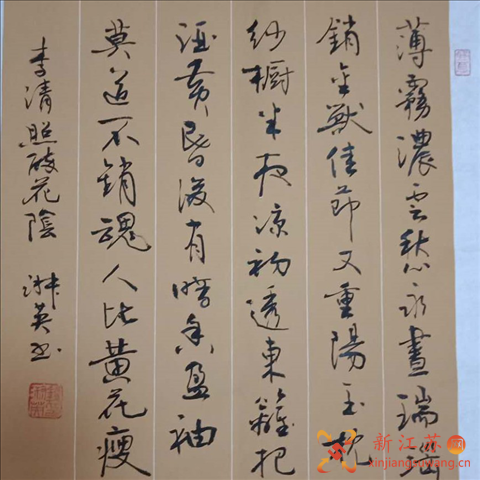 薄霧濃云愁永晝瑞腦
銷金獸佳節又重陽玉枕
紗橱半夜凉初透東籬把
酒黄昏後有暗香盈袖
莫道不銷魂人比黄花瘦
李清照醉花陰 淑英书
新江苏
xinjiangsuwang.cn